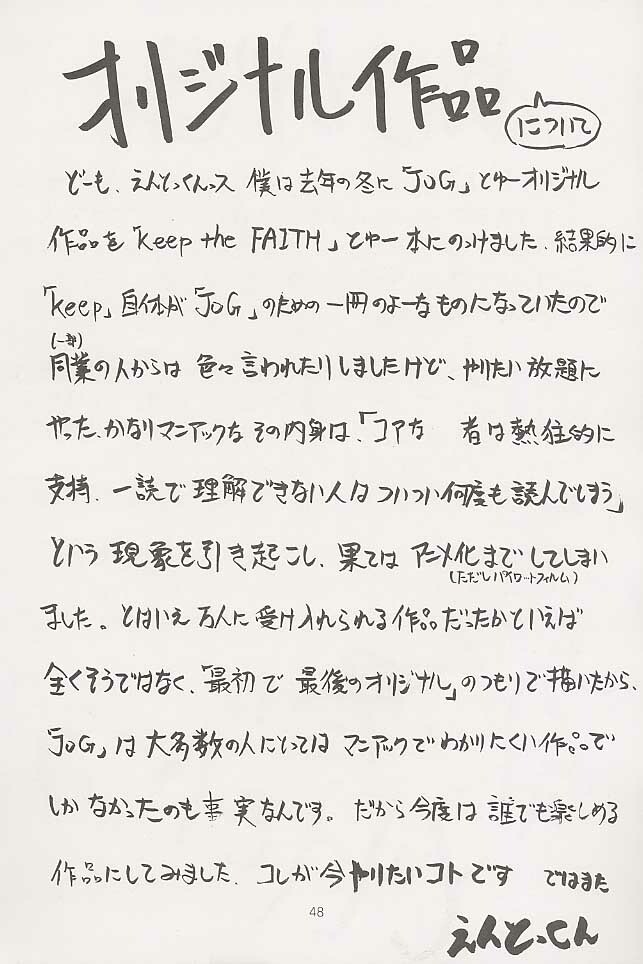 オリジナル作品
について
どーも、えんどっくんっス 僕は去年の冬に「JOG」とゆーオリジナル
作品を「keep the FAITH」とゆー本にのっけました、結果的に
「keep」自体が「JOG」のための一冊のよーなものになっていたので
(一部)
同業の人からは 色々言われたりしましたけど、やりたい放題に
やった、かなりマニアックな その内身は、「コアな 者は熱狂的に
支持、一読で理解できない人はついつい何度も読んでしまう」
という 現象を引き起こし、果ては アニメ化までしてしまい
(ただしパイロットフィルム)
ました。とはいえ 万人に受け入れられる作品だったかといえば
全くそうではなく、「最初で 最後のオリジナル」のつもりで描いたから、
「JOG」は 大多数の人にとっては マニアックでわかりにくい作品で
しかなかったのも事実なんです。だから今度は 誰でも楽しめる
作品にしてみました、コレが今やりたいコトです ではまた
48